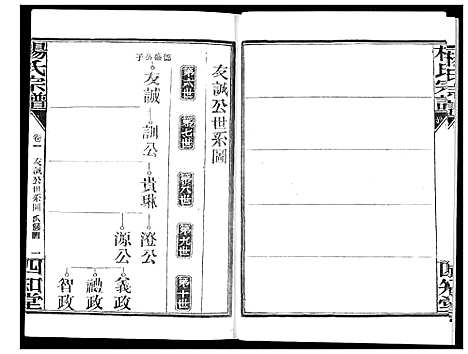 楊氏宗譜
四知堂
友誠公世系圖
第六世
第七世
第八世
第九世
第十世
友誠
訓公
貴琳
澄公
源公
義政
禮政
智政
楊氏宗譜
卷一
友誠公世系圖
一
四知堂